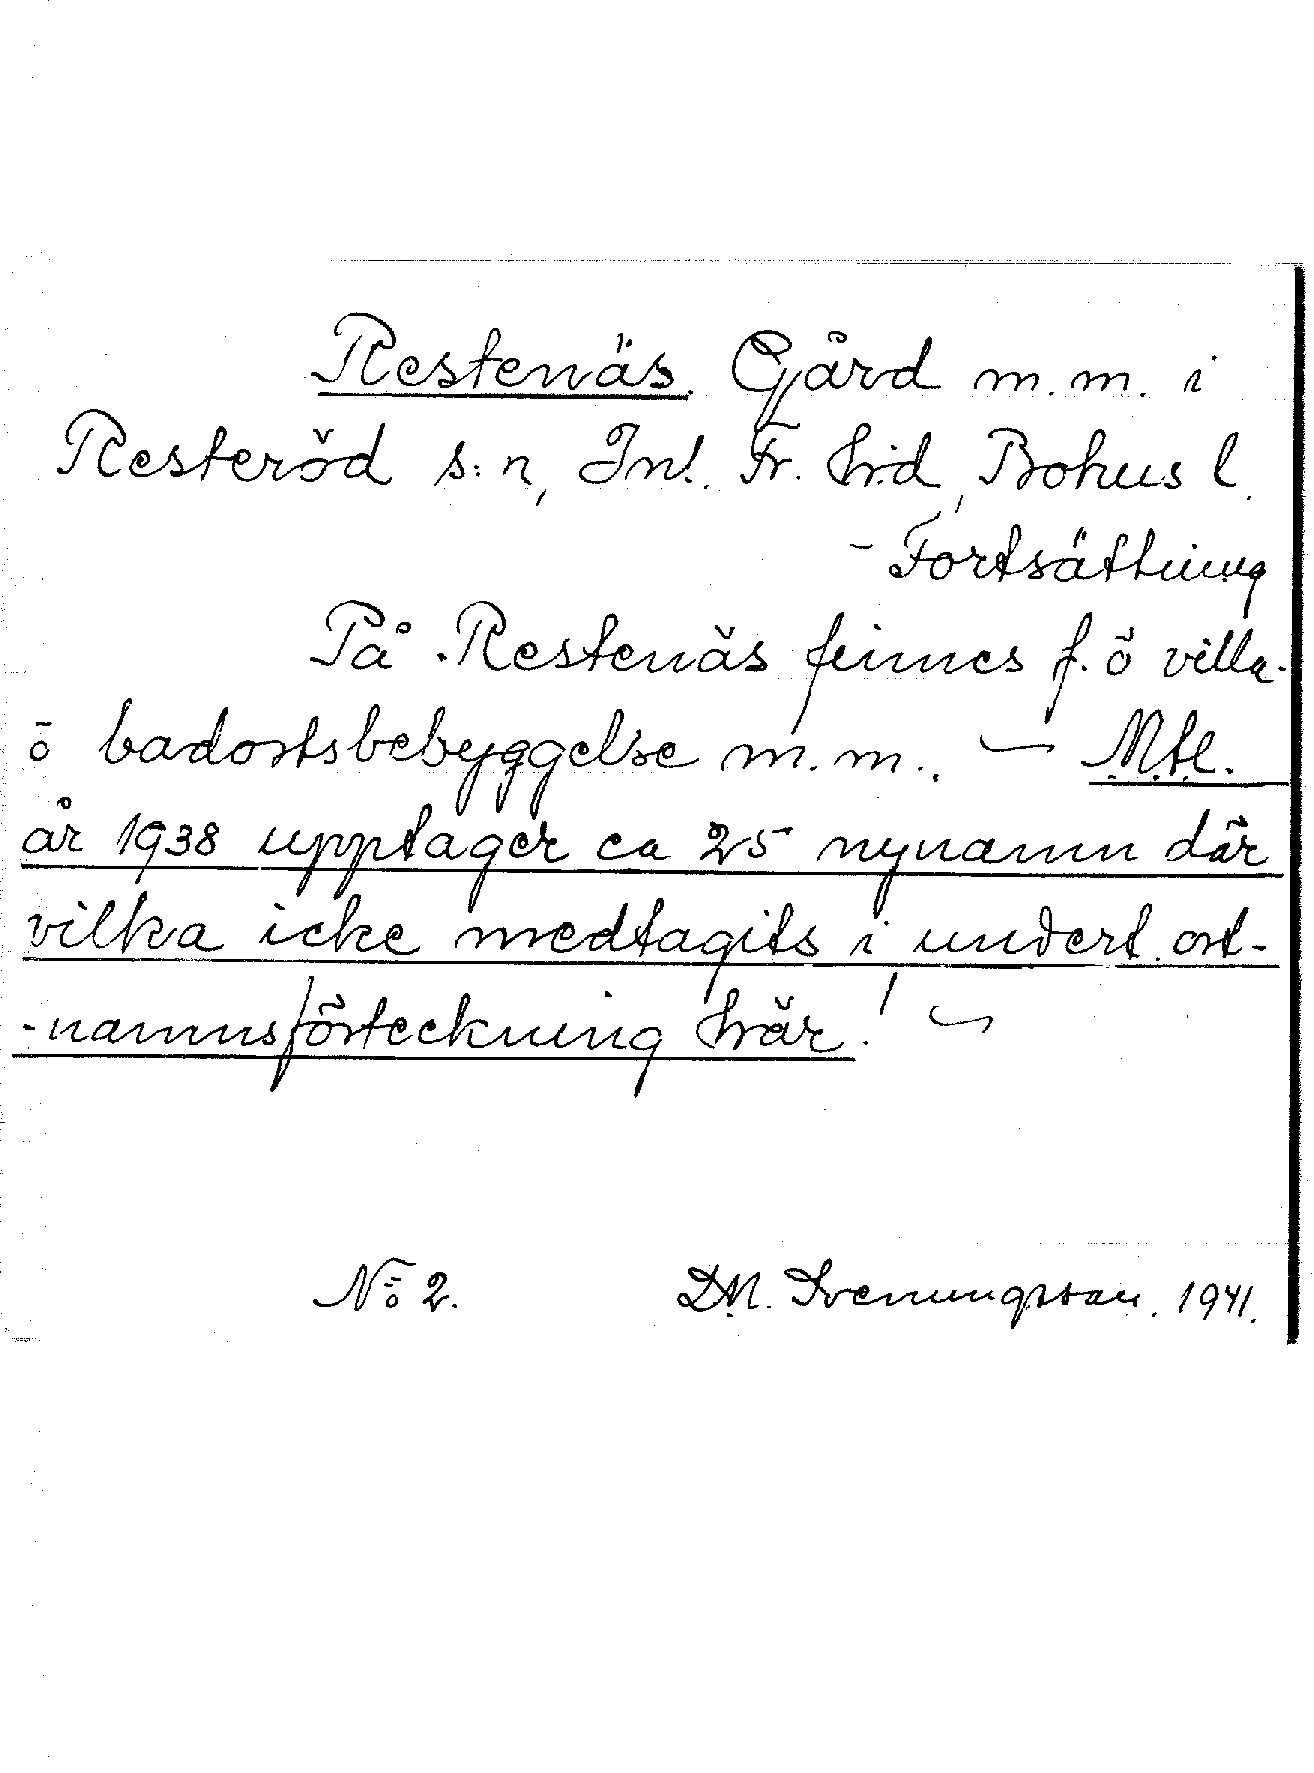 Restenäs. Gård m.m. i
Resteröd s:n, Inl. Fr. hrd, Bohus l.
- Fortsättning
På Restenäs finnes f. ö villa-
ō badortsbebyggelse m.m. — Mtl.
år 1938 upptager ca 25 nynamn där
vilka icke medtagits i undert. ort-
-namnsförteckning här! —
No 2. D.N. Svenungsson. 1941.